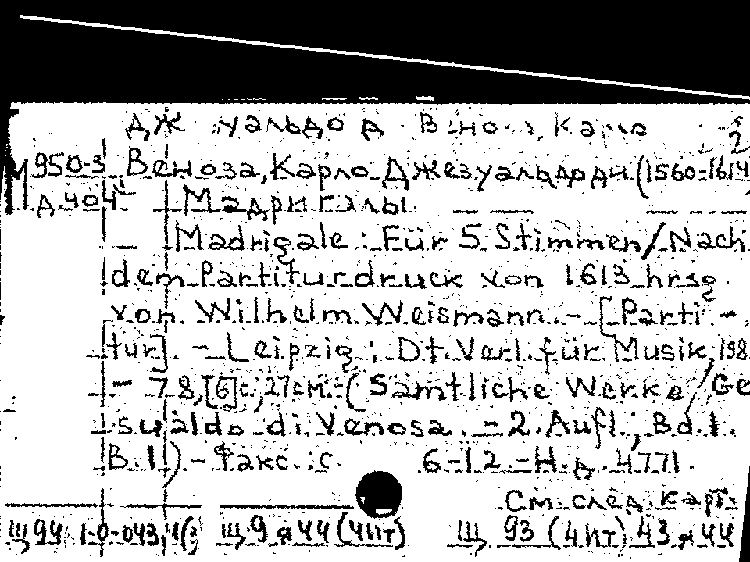 Дж уальдо д Вено , Карло 2
М 950-3 Веноза, Карло Джезуальдо ди (1560-1614
Д 404 Мадригалы.
Madrigale : Für 5 Stimmen / Nach
dem Partiturdruck von 1613 hrsg
von Wilhelm Weismann. - [Parti -
tur]. - Leipzig : Dt. Verl. für Musik, 198
- 78, [6] с.; 27 см. - (Sämtliche Werke / Ge
sualdo di Venosa. - 2. Aufl.; Bd. 1.
B. 1.) - Факс.: с. 6-12. - Н. д. 4771.
См. след. карт.
Щ 9 я 44 (4Ит) Щ 93 (4Ит) 43 я 44